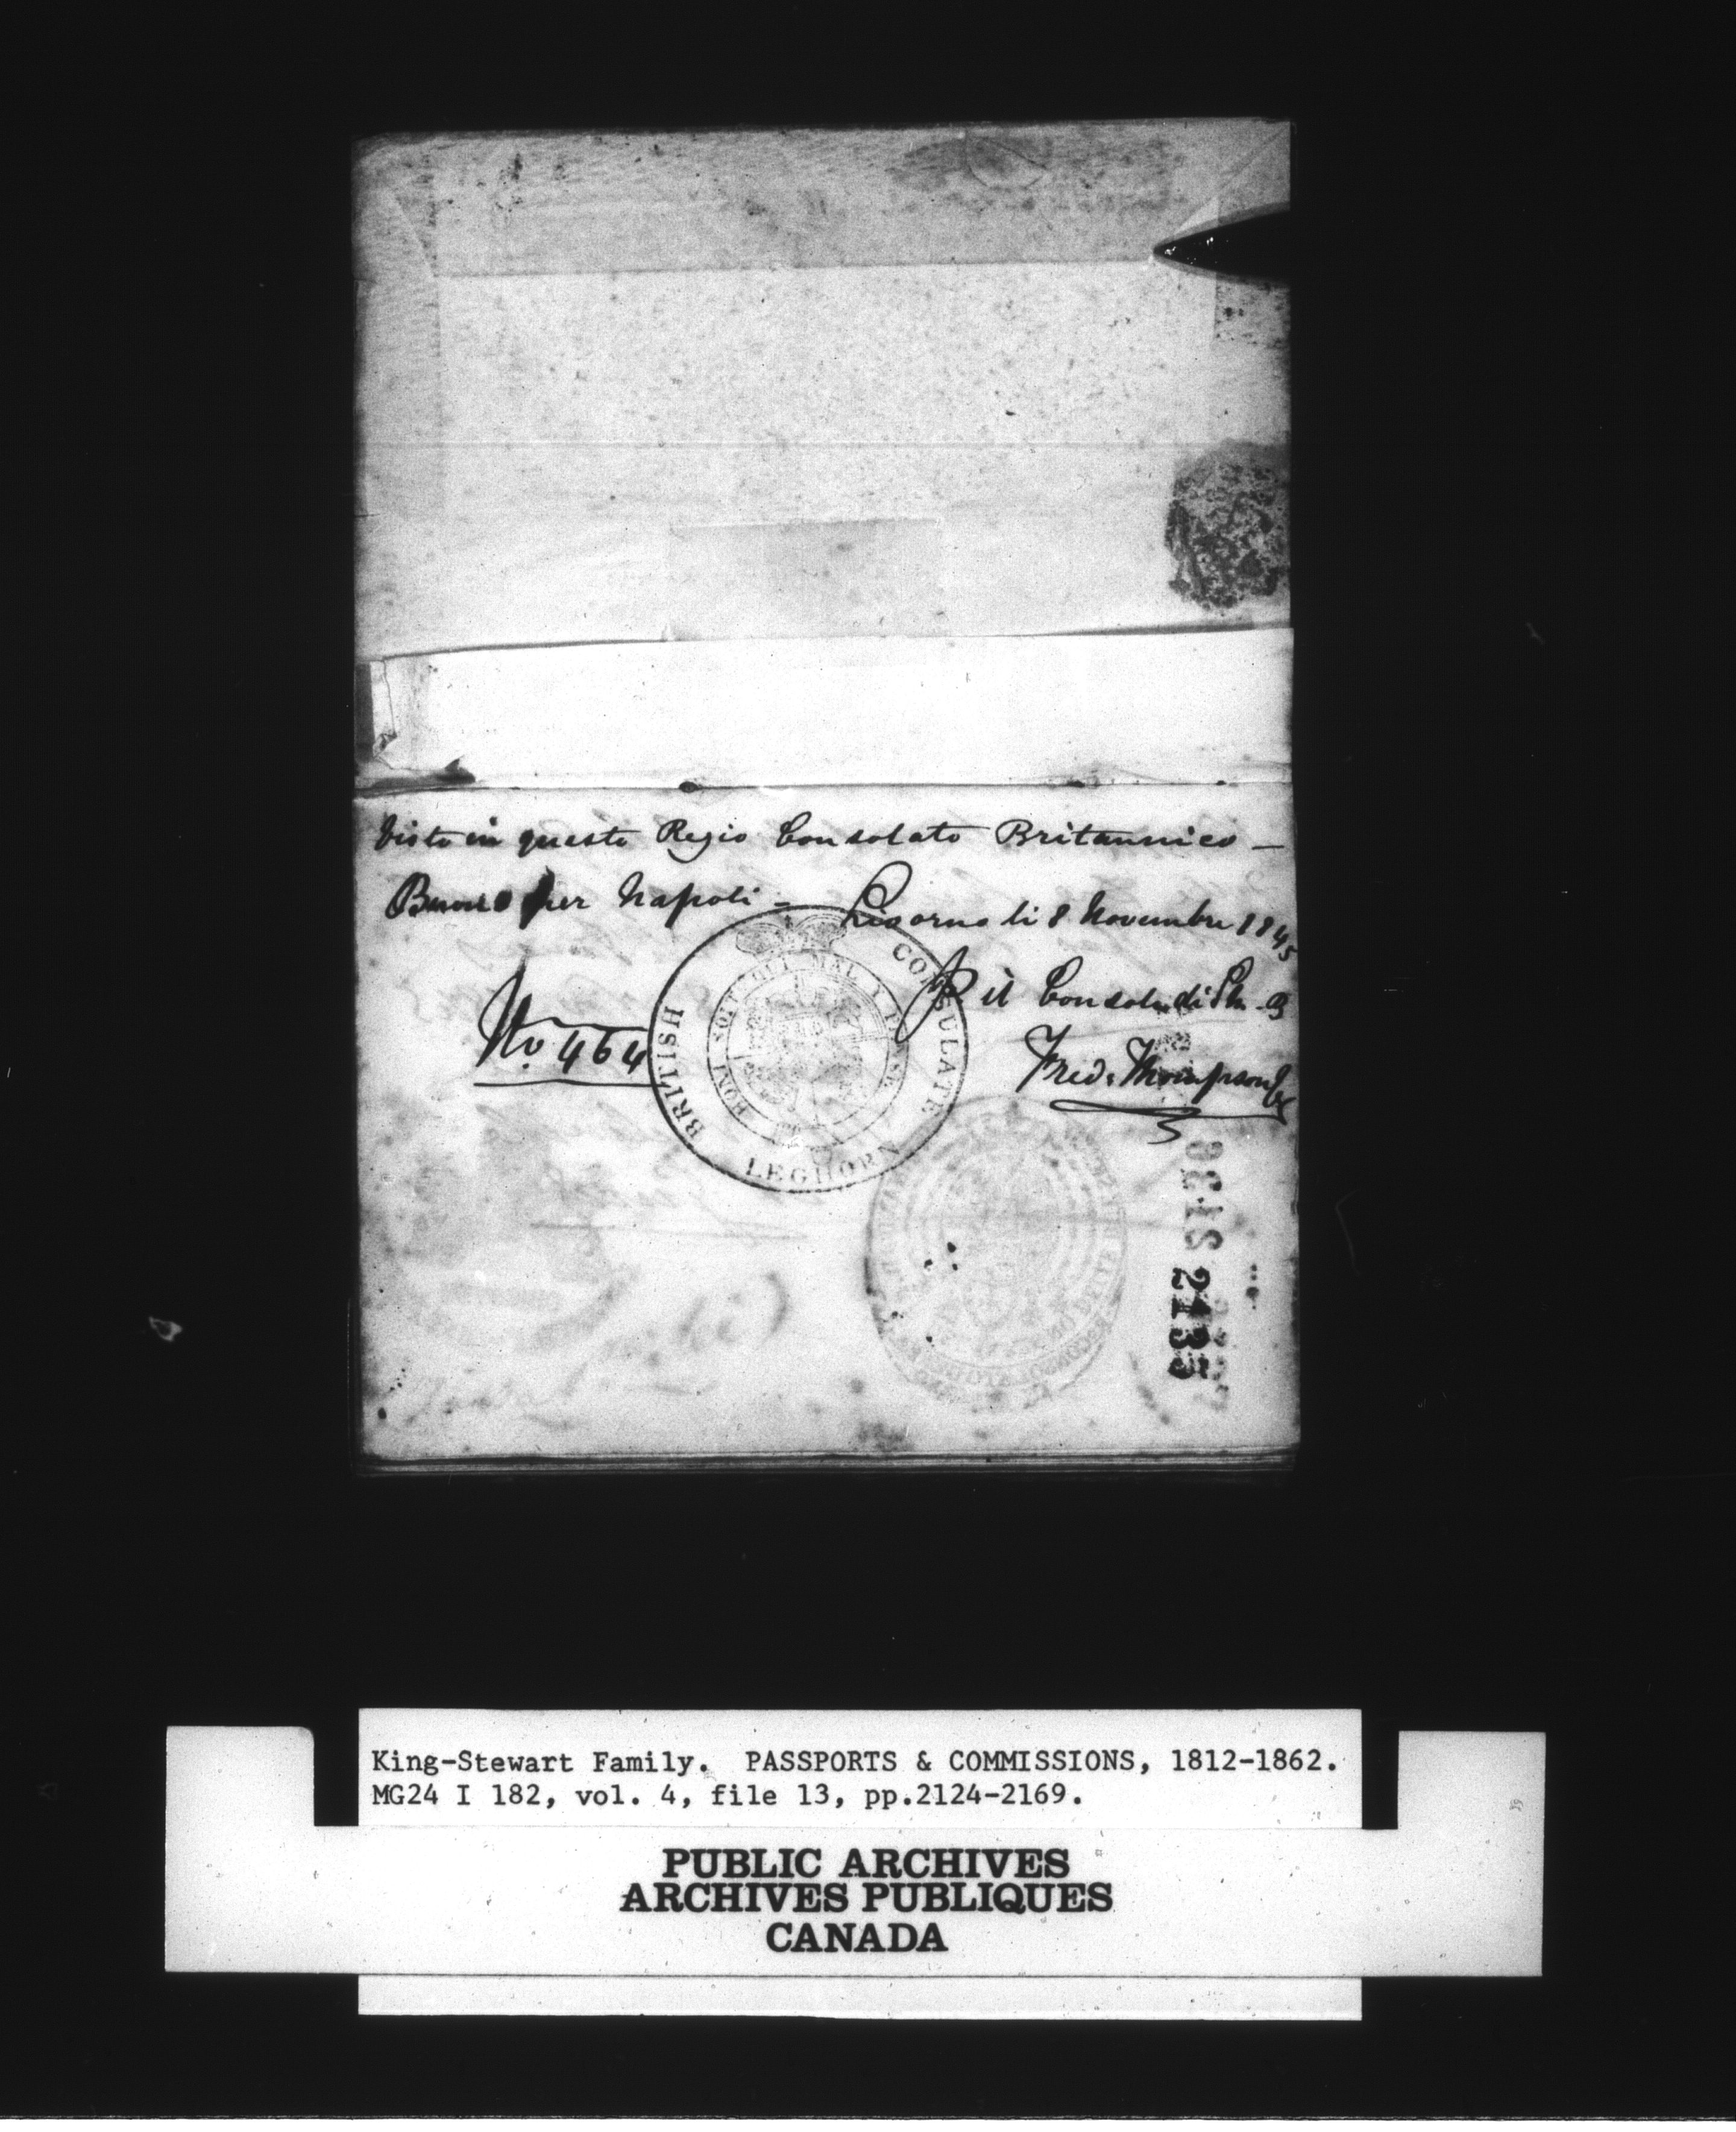 Visto in questo Regio Consolato Britannico —
Buono per Napoli — Livorno li 8 Novembre 1845
P il Console di S.M.B
No. 464
Fred. Thompson
BRITISH CONSULATE
LEGHORN
HONI SOIT QUI MAL Y PENSE
2135
King-Stewart Family. PASSPORTS & COMMISSIONS, 1812-1862.
MG24 I 182, vol. 4, file 13, pp.2124-2169.
PUBLIC ARCHIVES
ARCHIVES PUBLIQUES
CANADA